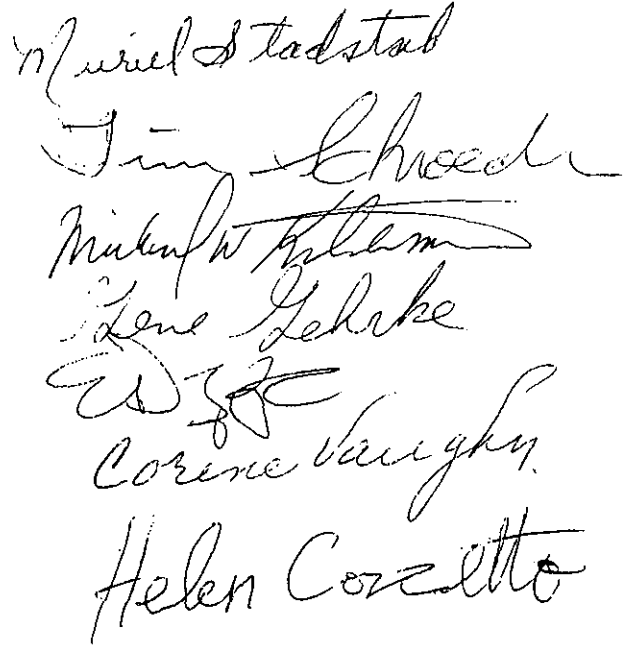 Muriel Stadstad
Tim Schroeder
Michael W
Gene Gehrke
Corine Vaughn
Helen Cozzetto